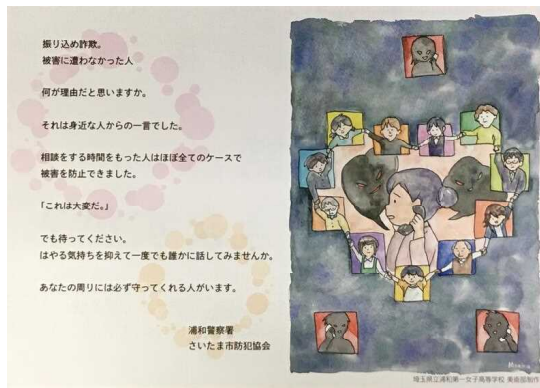 振り込め詐欺。
被害に遭わなかった人
何が理由だと思いますか。
それは身近な人からの一言でした。
相談をする時間をもった人はほぼ全てのケースで
被害を防止できました。
「これは大変だ。」
でも待ってください。
はやる気持ちを抑えて一度でも誰かに話してみませんか。
あなたの周りには必ず守ってくれる人がいます。
浦和警察署
さいたま市防犯協会
埼玉県立浦和第一女子高等学校 美術部制作